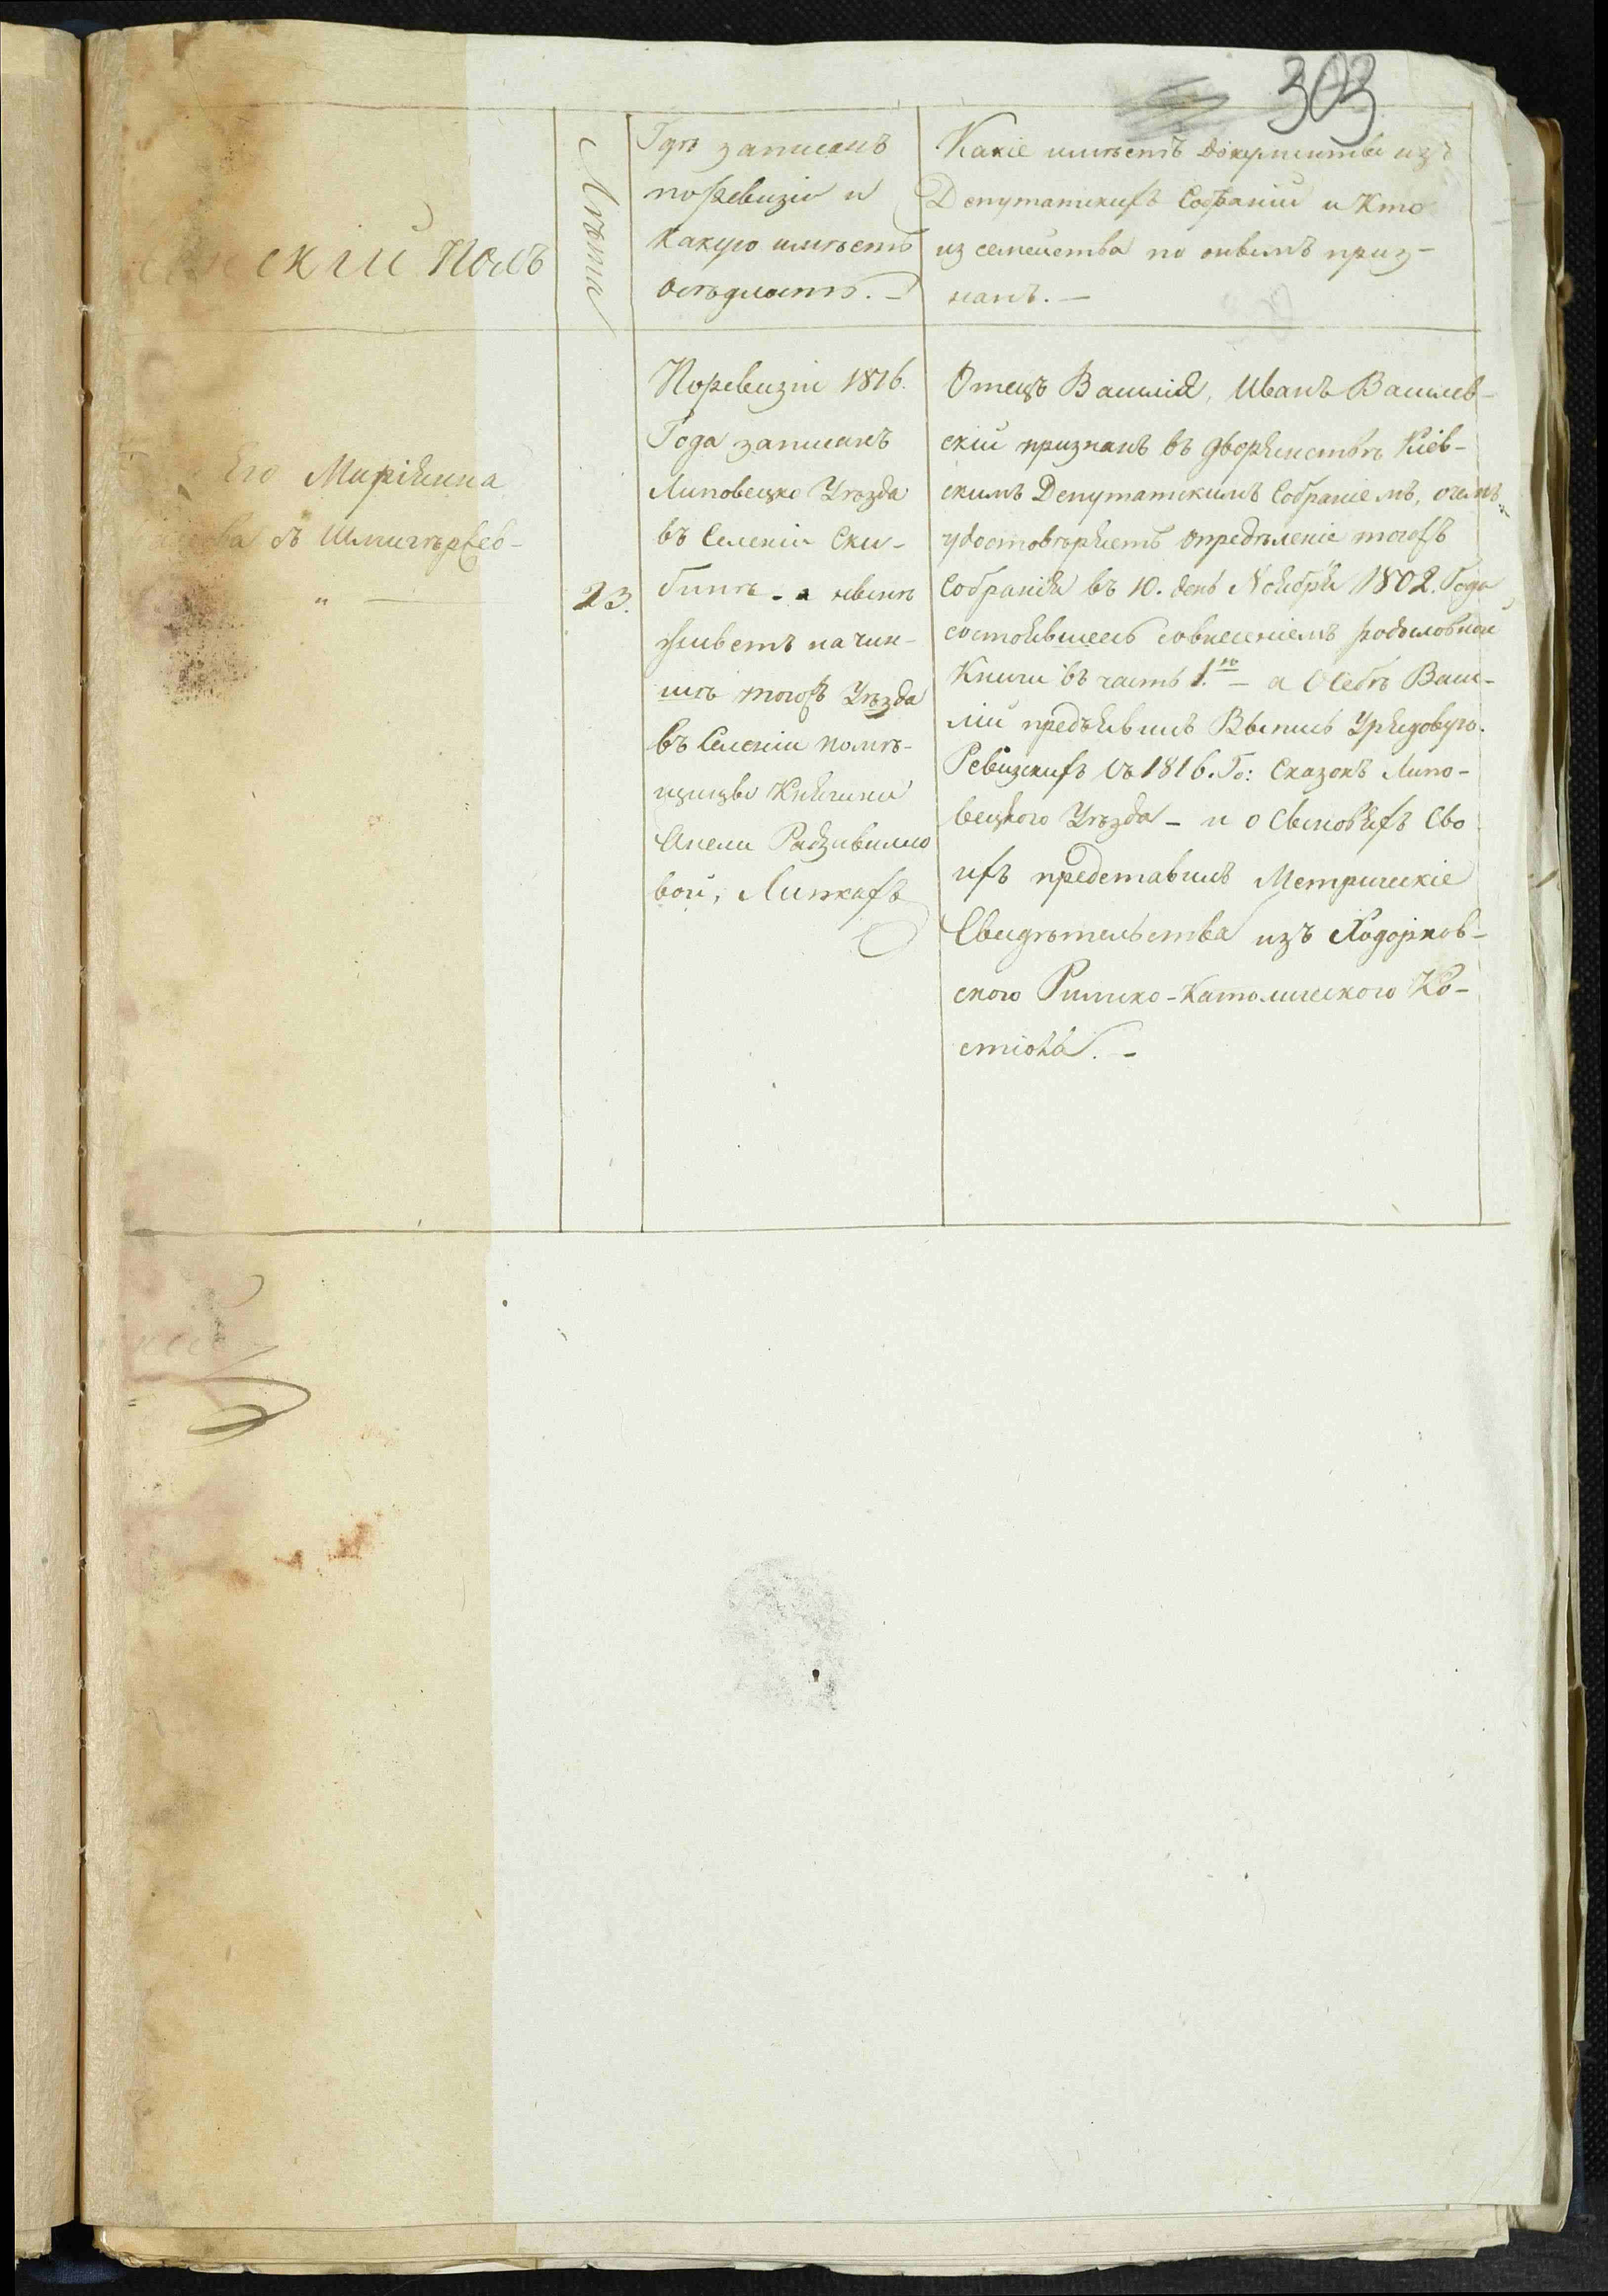 303
скій Полъ
Лѣта
Гдѣ записанъ
по ревизіи и
какую имѣетъ
осѣдлость. —
Какіе имѣетъ документы изъ
Депутатскихъ Собраній и Кто
из семейства по онымъ приз-
нанъ. —
Его Маріянна
съ
23.
По ревизіи 1816.
Года записанъ
Липовецко Уѣзда
въ Селеніи Ски-
бинѣ - а нынѣ
живетъ на чин-
шѣ тогожъ Уѣзда
въ Селеніи помѣ-
щицы Княгини
Анели Радзивилло
вой, Липкахъ
Отецъ Василія, Иванъ Василев-
скій признанъ въ дворянствѣ Кіев-
скимъ Депутатскимъ Собраніемъ, очемъ
удостовѣряетъ опредѣленіе тогожъ
Собранія въ 10. день Ноября 1802. Года
состоявшееся совнесеніемъ родословной
Книги въ часть 1.ю — а О Себѣ Васи-
лій предъявилъ Выпись Урядовую.
Ревизскихъ съ 1816. Го: Сказокъ Липо-
вецкого Уѣзда - и о Сыновяхъ Сво
ихъ представилъ Метрическіе
Свидѣтельства изъ Ходорков-
ского Римско-Католического Ко-
стіола. -